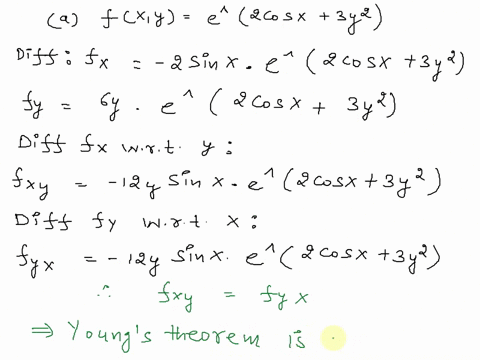 (a) f(x,y) = e^(2cosx + 3y²)
Diff: fx = -2 Sinx . e^(2cosx + 3y²)
fy = 6y . e^(2cosx + 3y²)
Diff fx w.r.t. y:
fxy = -12y Sinx . e^(2cosx + 3y²)
Diff fy w.r.t. x:
fyx = -12y Sinx . e^(2cosx + 3y²)
∴ fxy = fyx
⇒ Young's theorem is